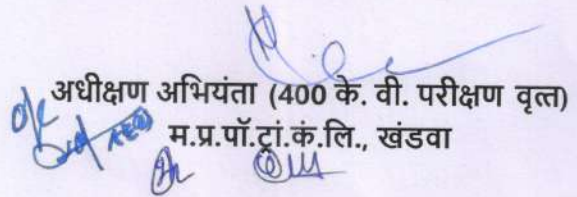 अधीक्षण अभियंता (400 के. वी. परीक्षण वृत्त)
म.प्र.पॉ.ट्रां.कं.लि., खंडवा